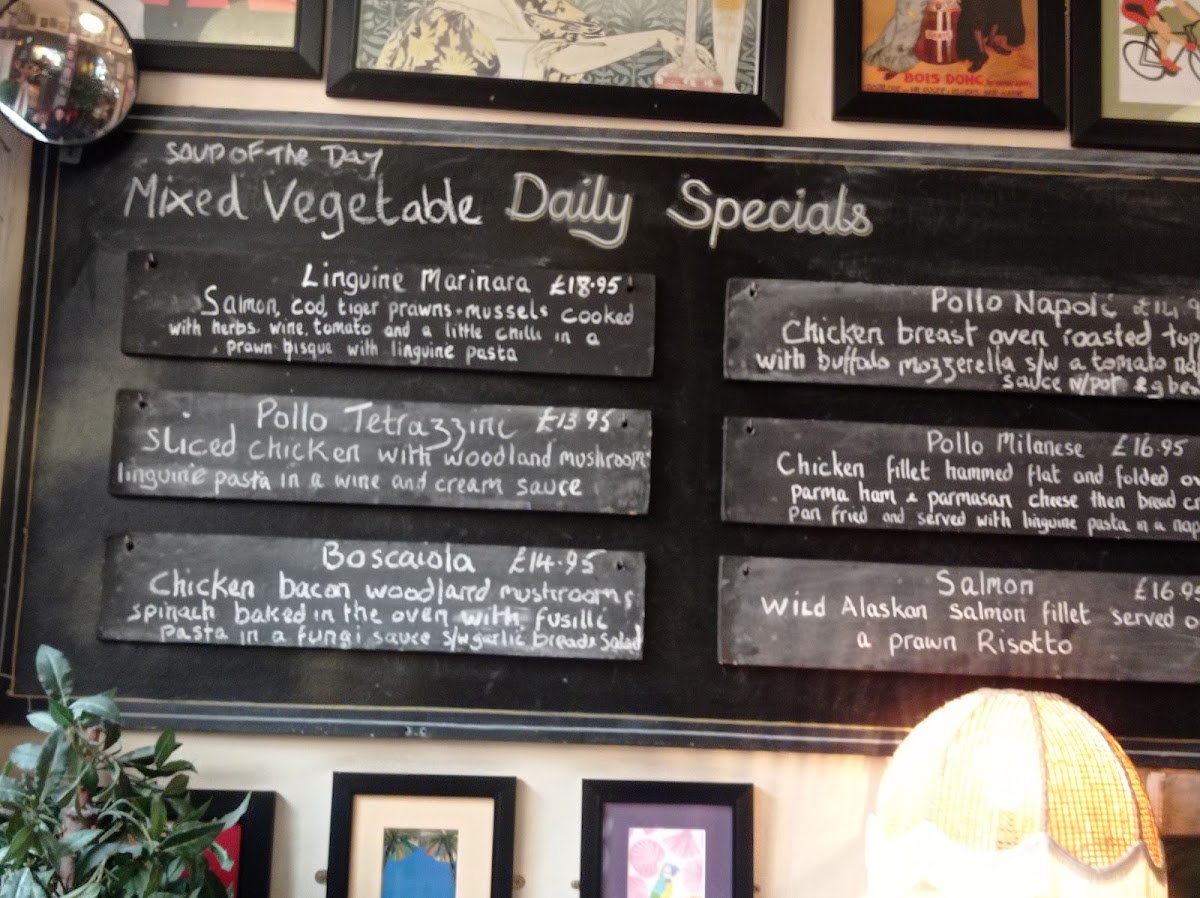 BOIS DONC
SOUP OF THE DAY
Mixed Vegetable Daily Specials
Linguine Marinara £18.95
Salmon, cod, tiger prawns + mussels cooked
with herbs. wine, tomato and a little chilli in a
prawn bisque with linguine pasta
Pollo Tetrazzini £13.95
Sliced chicken with woodland mushroom
linguine pasta in a wine and cream sauce
Boscaiola £14.95
Chicken bacon woodland mushrooms
spinach baked in the oven with fusilli
pasta in a fungi sauce s/w garlic bread & salad
Pollo Napoli
Chicken breast oven roasted top
with buffalo mozzerella s/w a tomato nap
sauce
Pollo Milanese £16.95
Chicken fillet hammed flat and folded ov
parma ham & parmasan cheese then bread c
pan fried and served with linguine pasta in a nap
Salmon £16.95
Wild Alaskan salmon fillet served o
a prawn Risotto